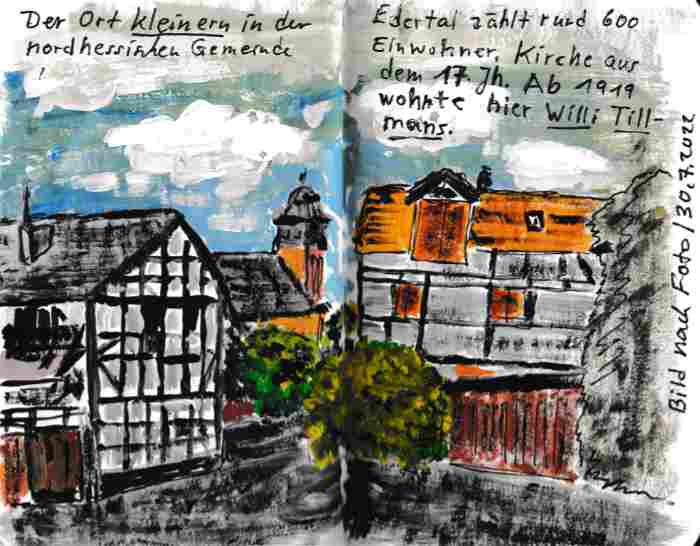 Der Ort kleinern in der
nordhessischen Gemeinde
Edertal zählt rund 600
Einwohner. Kirche aus
dem 17. Jh. Ab 1919
wohnte hier Willi Till-
mans.
Bild nach Foto / 30.7.2022